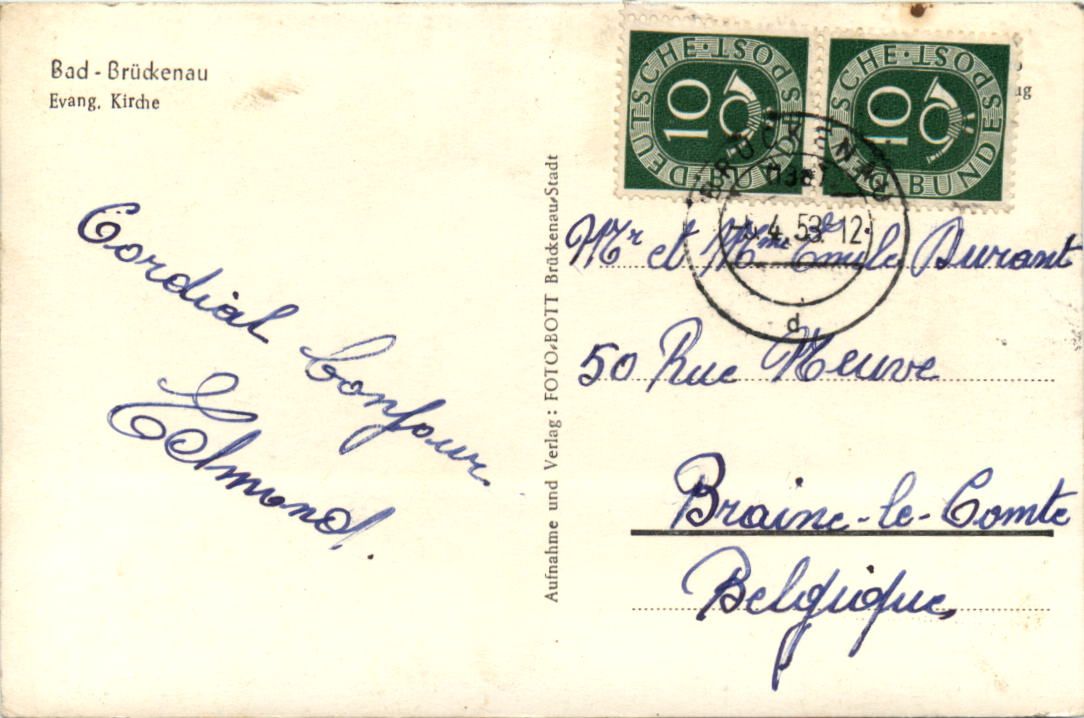 Bad - Brückenau
Evang. Kirche
Cordial bonjour
Edmond.
Aufnahme und Verlag: FOTO-BOTT Brückenau-Stadt
DEUTSCHE · BUNDESPOST
10
DEUTSCHE · BUNDESPOST
10
BRÜCKENAU
4.53. 12
d
ug
Mr et Mme Emile Durant
50 Rue Neuve
Braine-le-Comte
Belgique